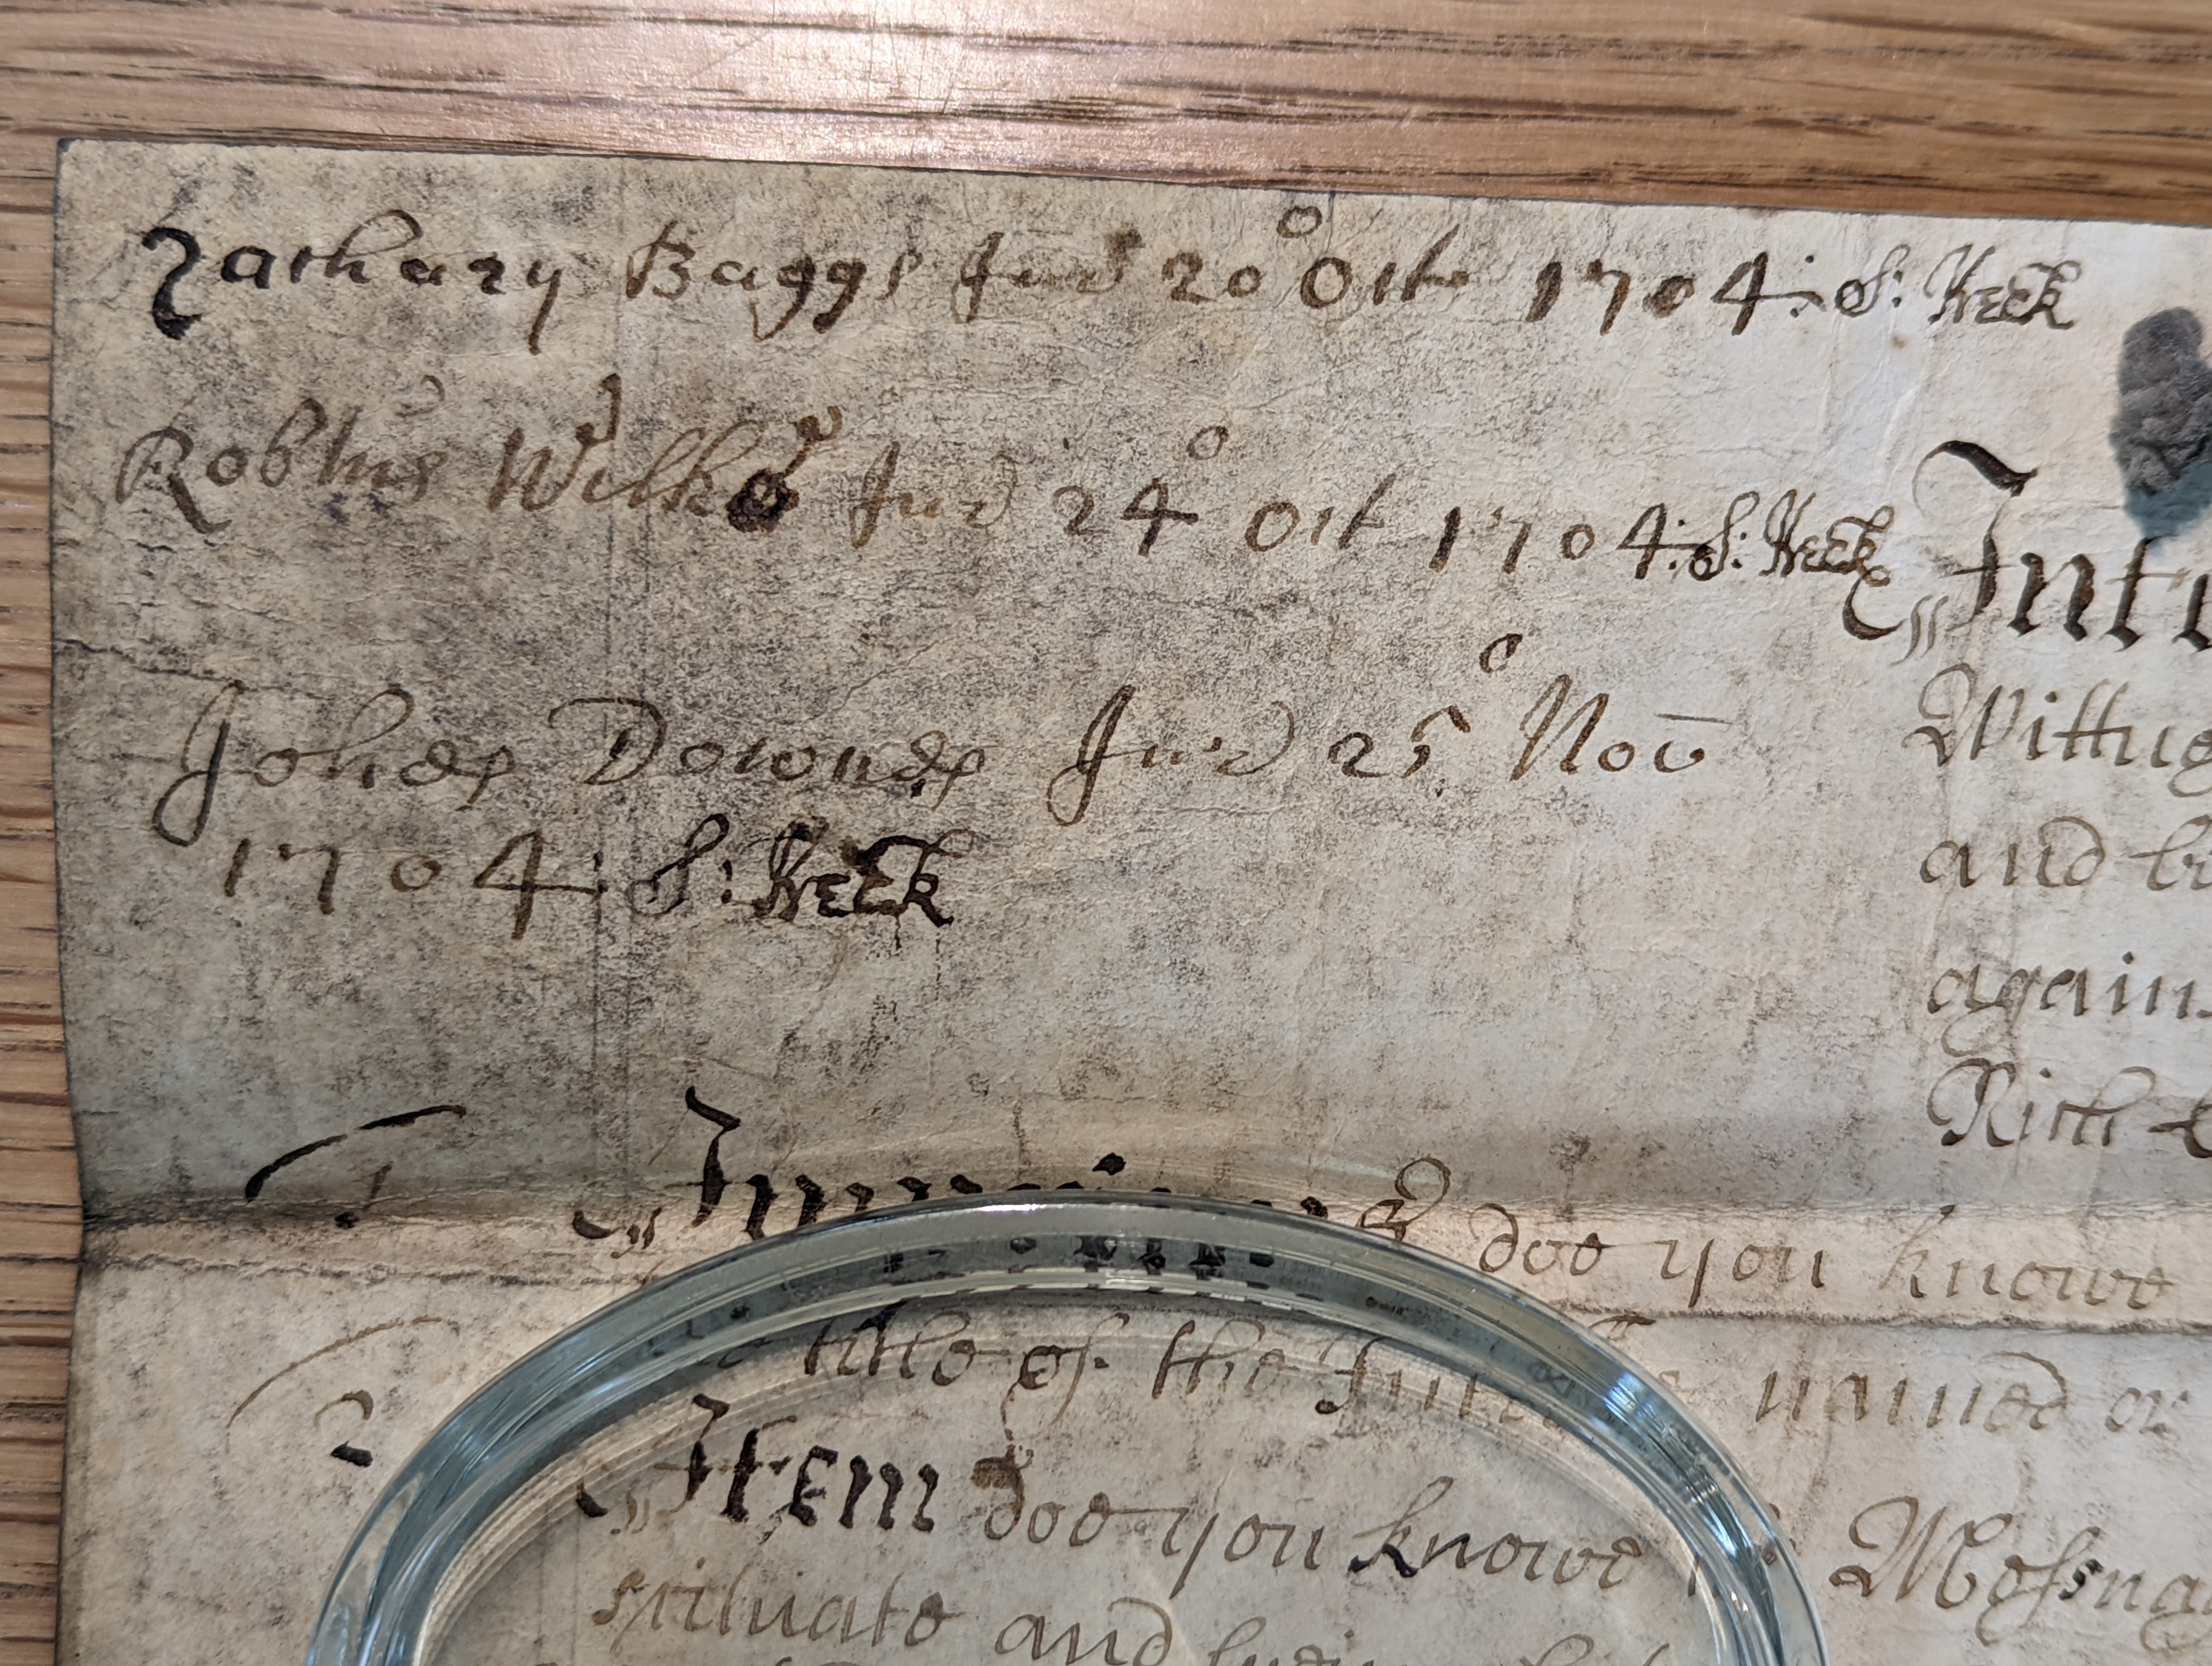 Zachary Baggs Jur 20° Oct 1704: S: Keck
Robtus Wilks Jur 24° Oct 1704: S: Keck
Johes Downes Jur 25° Nov
1704: S: Keck
Inte
Wittnes
and b
again
Rich
1 Imprimis doe you knowe
title of the named or
2 Item doe you knowe Messua
scituate and